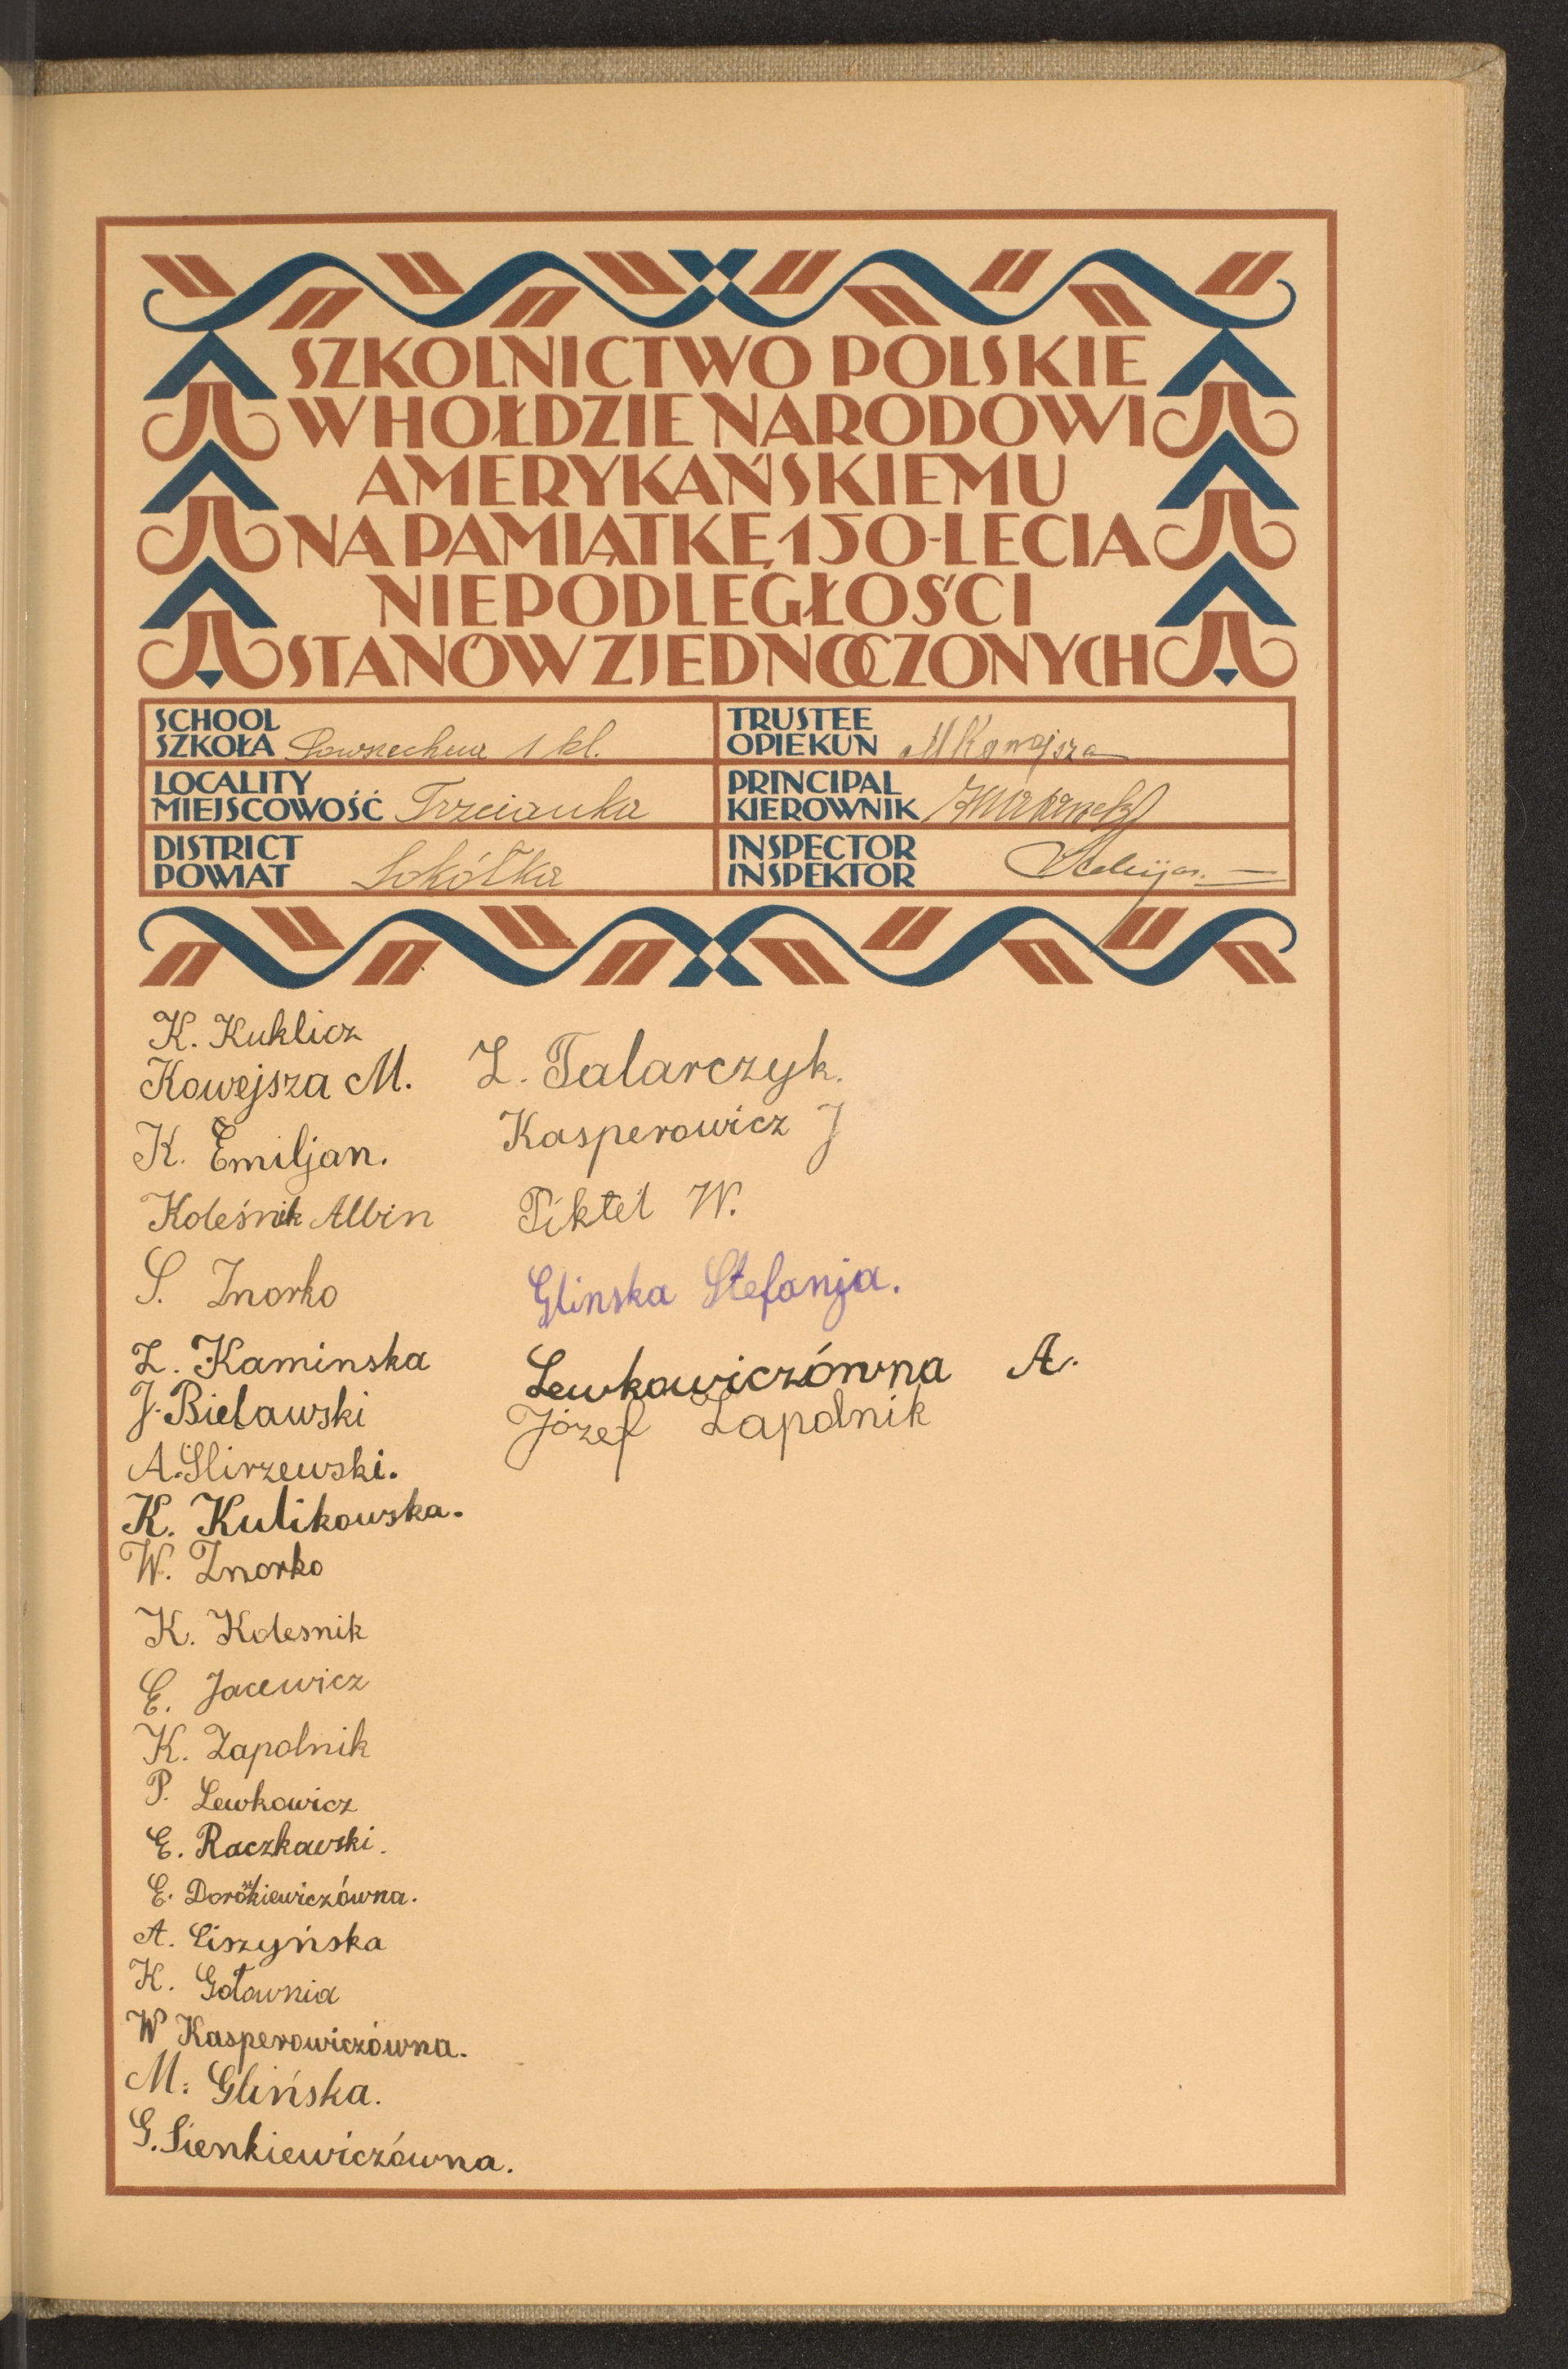 SZKOLNICTWO POLSKIE
W HOŁDZIE NARODOWI
AMERYKAŃSKIEMU
NA PAMIĄTKĘ 150-LECIA
NIEPODLEGŁOŚCI
STANÓW ZJEDNOCZONYCH
SCHOOL
SZKOŁA Powszechna 1 kl.
LOCALITY
MIEJSCOWOŚĆ Trzcianka
DISTRICT
POWIAT Sokółka
TRUSTEE
OPIEKUN M Kowejsza
PRINCIPAL
KIEROWNIK
INSPECTOR
INSPEKTOR
K. Kuklicz
Kowejsza M.
K. Emiljan.
Koleśnik Albin
S. Znorko
Z. Kaminska
J. Bielawski
A. Ślirzewski.
K. Kulikowska.
W. Znorko
K. Kolesnik
E. Jacewicz
K. Zapolnik
P. Lewkowicz
E. Raczkowski.
E. Doroszkiewiczówna.
A. Liszyńska
K. Gołownia
W Kasperowiczówna.
M. Glińska.
G. Sienkiewiczówna.
Z. Talarczyk.
Kasperowicz J
Piktel W.
Glinska Stefanja.
Lewkowiczówna A.
Józef Zapolnik